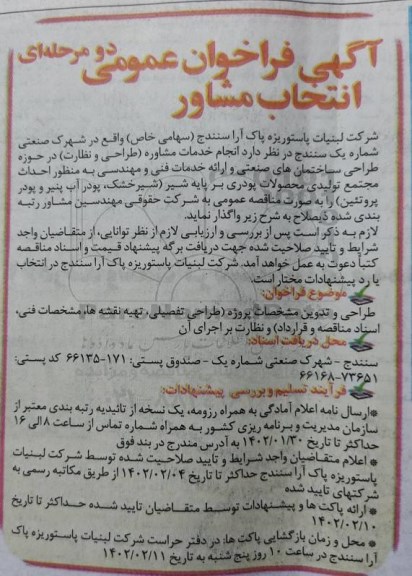 آگهی فراخوان عمومی دو مرحله‌ای
انتخاب مشاور
شرکت لبنیات پاستوریزه پاک آرا سنندج (سهامی خاص) واقع در شهرک صنعتی
شماره یک سنندج در نظر دارد انجام خدمات مشاوره (طراحی و نظارت) در حوزه
طراحی ساختمان های صنعتی و ارائه خدمات فنی و مهندسی به منظور احداث
مجتمع تولیدی محصولات پودری بر پایه شیر (شیرخشک، پودر آب پنیر و پودر
پروتئین) را به صورت مناقصه عمومی به شرکت حقوقی مهندسین مشاور رتبه
بندی شده ذیصلاح به شرح زیر واگذار نماید.
لازم به ذکر است پس از بررسی و ارزیابی لازم از نظر توانایی، از متقاضیان واجد
شرایط و تایید صلاحیت شده جهت دریافت برگه پیشنهاد قیمت و اسناد مناقصه
کتباً دعوت به عمل خواهد آمد. شرکت لبنیات پاستوریزه پاک آرا سنندج در انتخاب
یا رد پیشنهادات مختار است.
موضوع فراخوان:
طراحی و تدوین مشخصات پروژه (طراحی تفصیلی، تهیه نقشه ها، مشخصات فنی،
اسناد مناقصه و قرارداد) و نظارت بر اجرای آن
محل دریافت اسناد:
سنندج - شهرک صنعتی شماره یک - صندوق پستی: ۱۷۱-۶۶۱۳۵ کد پستی:
۷۳۶۵۱-۶۶۱۶۸
فرآیند تسلیم و بررسی پیشنهادات:
• ارسال نامه اعلام آمادگی به همراه رزومه، یک نسخه از تائیدیه رتبه بندی معتبر از
سازمان مدیریت و برنامه ریزی کشور به همراه شماره تماس از ساعت ۸ الی ۱۶
حداکثر تا تاریخ ۱۴۰۲/۰۱/۳۰ به آدرس مندرج در بند فوق
• اعلام متقاضیان واجد شرایط و تایید صلاحیت شده توسط شرکت لبنیات
پاستوریزه پاک آرا سنندج حداکثر تا تاریخ ۱۴۰۲/۰۲/۰۴ از طریق مکاتبه رسمی به
شرکتهای تایید شده
• ارائه پاکت ها و پیشنهادات توسط متقاضیان تایید شده حداکثر تا تاریخ
۱۴۰۲/۰۲/۱۰
• محل و زمان بازگشایی پاکت ها: در دفتر حراست شرکت لبنیات پاستوریزه پاک
آرا سنندج در ساعت ۱۰ روز پنج شنبه به تاریخ ۱۴۰۲/۰۲/۱۱